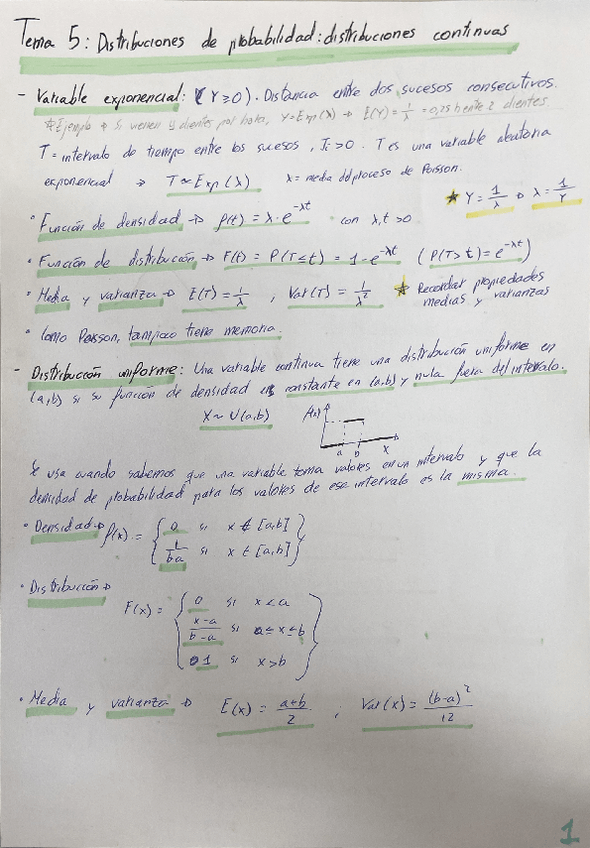 Tema 5: Distribuciones de probabilidad: distribuciones continuas
- Variable exponencial: (Y≥0). Distancia entre dos sucesos consecutivos.
*Ejemplo → Si vienen 4 clientes por hora, Y=Exp(λ) → E(Y) = 1/λ = 0,25 h entre 2 clientes
T = intervalo de tiempo entre los sucesos, T>0. T es una variable aleatoria
exponencial → T~Exp(λ) λ = media del proceso de Poisson.
★ Y = 1/λ → λ = 1/Y
• Función de densidad → f(t) = λ·e^-λt con λ,t >0
• Función de distribución → F(t) = P(T≤t) = 1-e^-λt (P(T>t) = e^-λt)
• Media y varianza → E(T) = 1/λ ; Var(T) = 1/λ² ★ Recordar propiedades
medias y varianzas
• Como Poisson, tampoco tiene memoria.
- Distribución uniforme: Una variable continua tiene una distribución uniforme en
(a,b) si su función de densidad es constante en (a,b) y nula fuera del intervalo.
X ~ U(a,b)
f(x)
a b X
Se usa cuando sabemos que una variable toma valores en un intervalo y que la
densidad de probabilidad para los valores de ese intervalo es la misma.
• Densidad → f(x) = { 0 si x ∉ [a,b]
1/b-a si x ∈ [a,b] }
• Distribución →
F(x) = { 0 si x < a
x-a/b-a si a ≤ x ≤ b
1 si x > b }
• Media y varianza → E(x) = a+b/2 ; Var(x) = (b-a)²/12
1